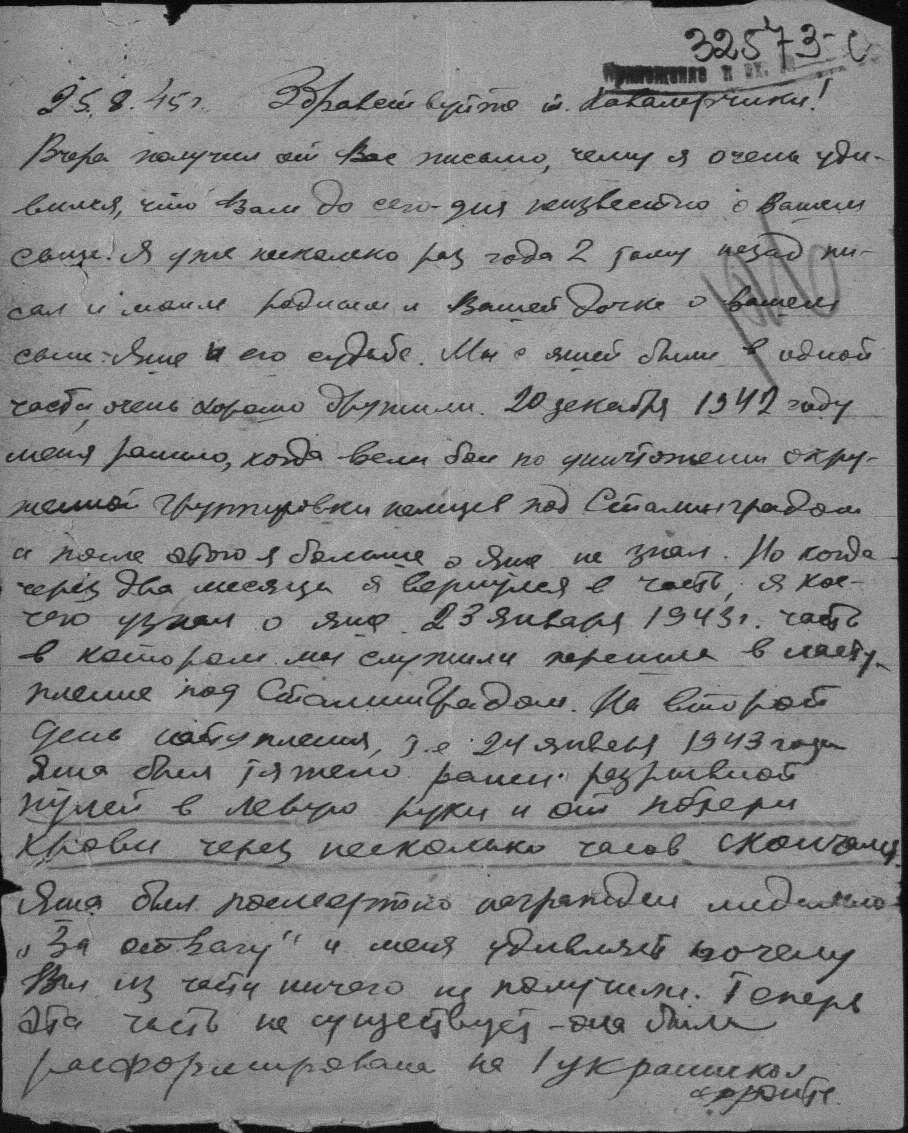 32573-с
Приложение к вх. №
25.8.45 г. Здравствуйте т. Кавалерчики!
Вчера получил от Вас письмо, чему я очень уди-
вился, что Вам до сего-дня неизвестно о Вашем
сыне. Я уже несколько раз года 2 тому назад пи-
сал и моим родным и Вашей дочке о вашем
сыне-Яше и его судьбе. Мы с яшей были в одной
части, очень хорошо дружили. 20 декабря 1942 году
меня ранило, когда вели бои по уничтожении окру-
женной группировки немцев под Сталинградом
и после этого я больше о Яше не знал. Но когда
через два месяца я вернулся в часть, я кое-
чего узнал о яше. 23 января 1943 г. часть
в котором мы служили перешла в насту-
пление под Сталинградом. На второй
день наступления, т.е 24 января 1943 года
Яша был тяжело ранен разрывной
пулей в левую руку и от потери
крови через несколько часов скончался.
Яша был посмертно награжден медалью
„За отвагу" и меня удивляет почему
Вы из части ничего не получили. Теперь
эта часть не существует - она была
расформирована на 1 украинском
фронте.